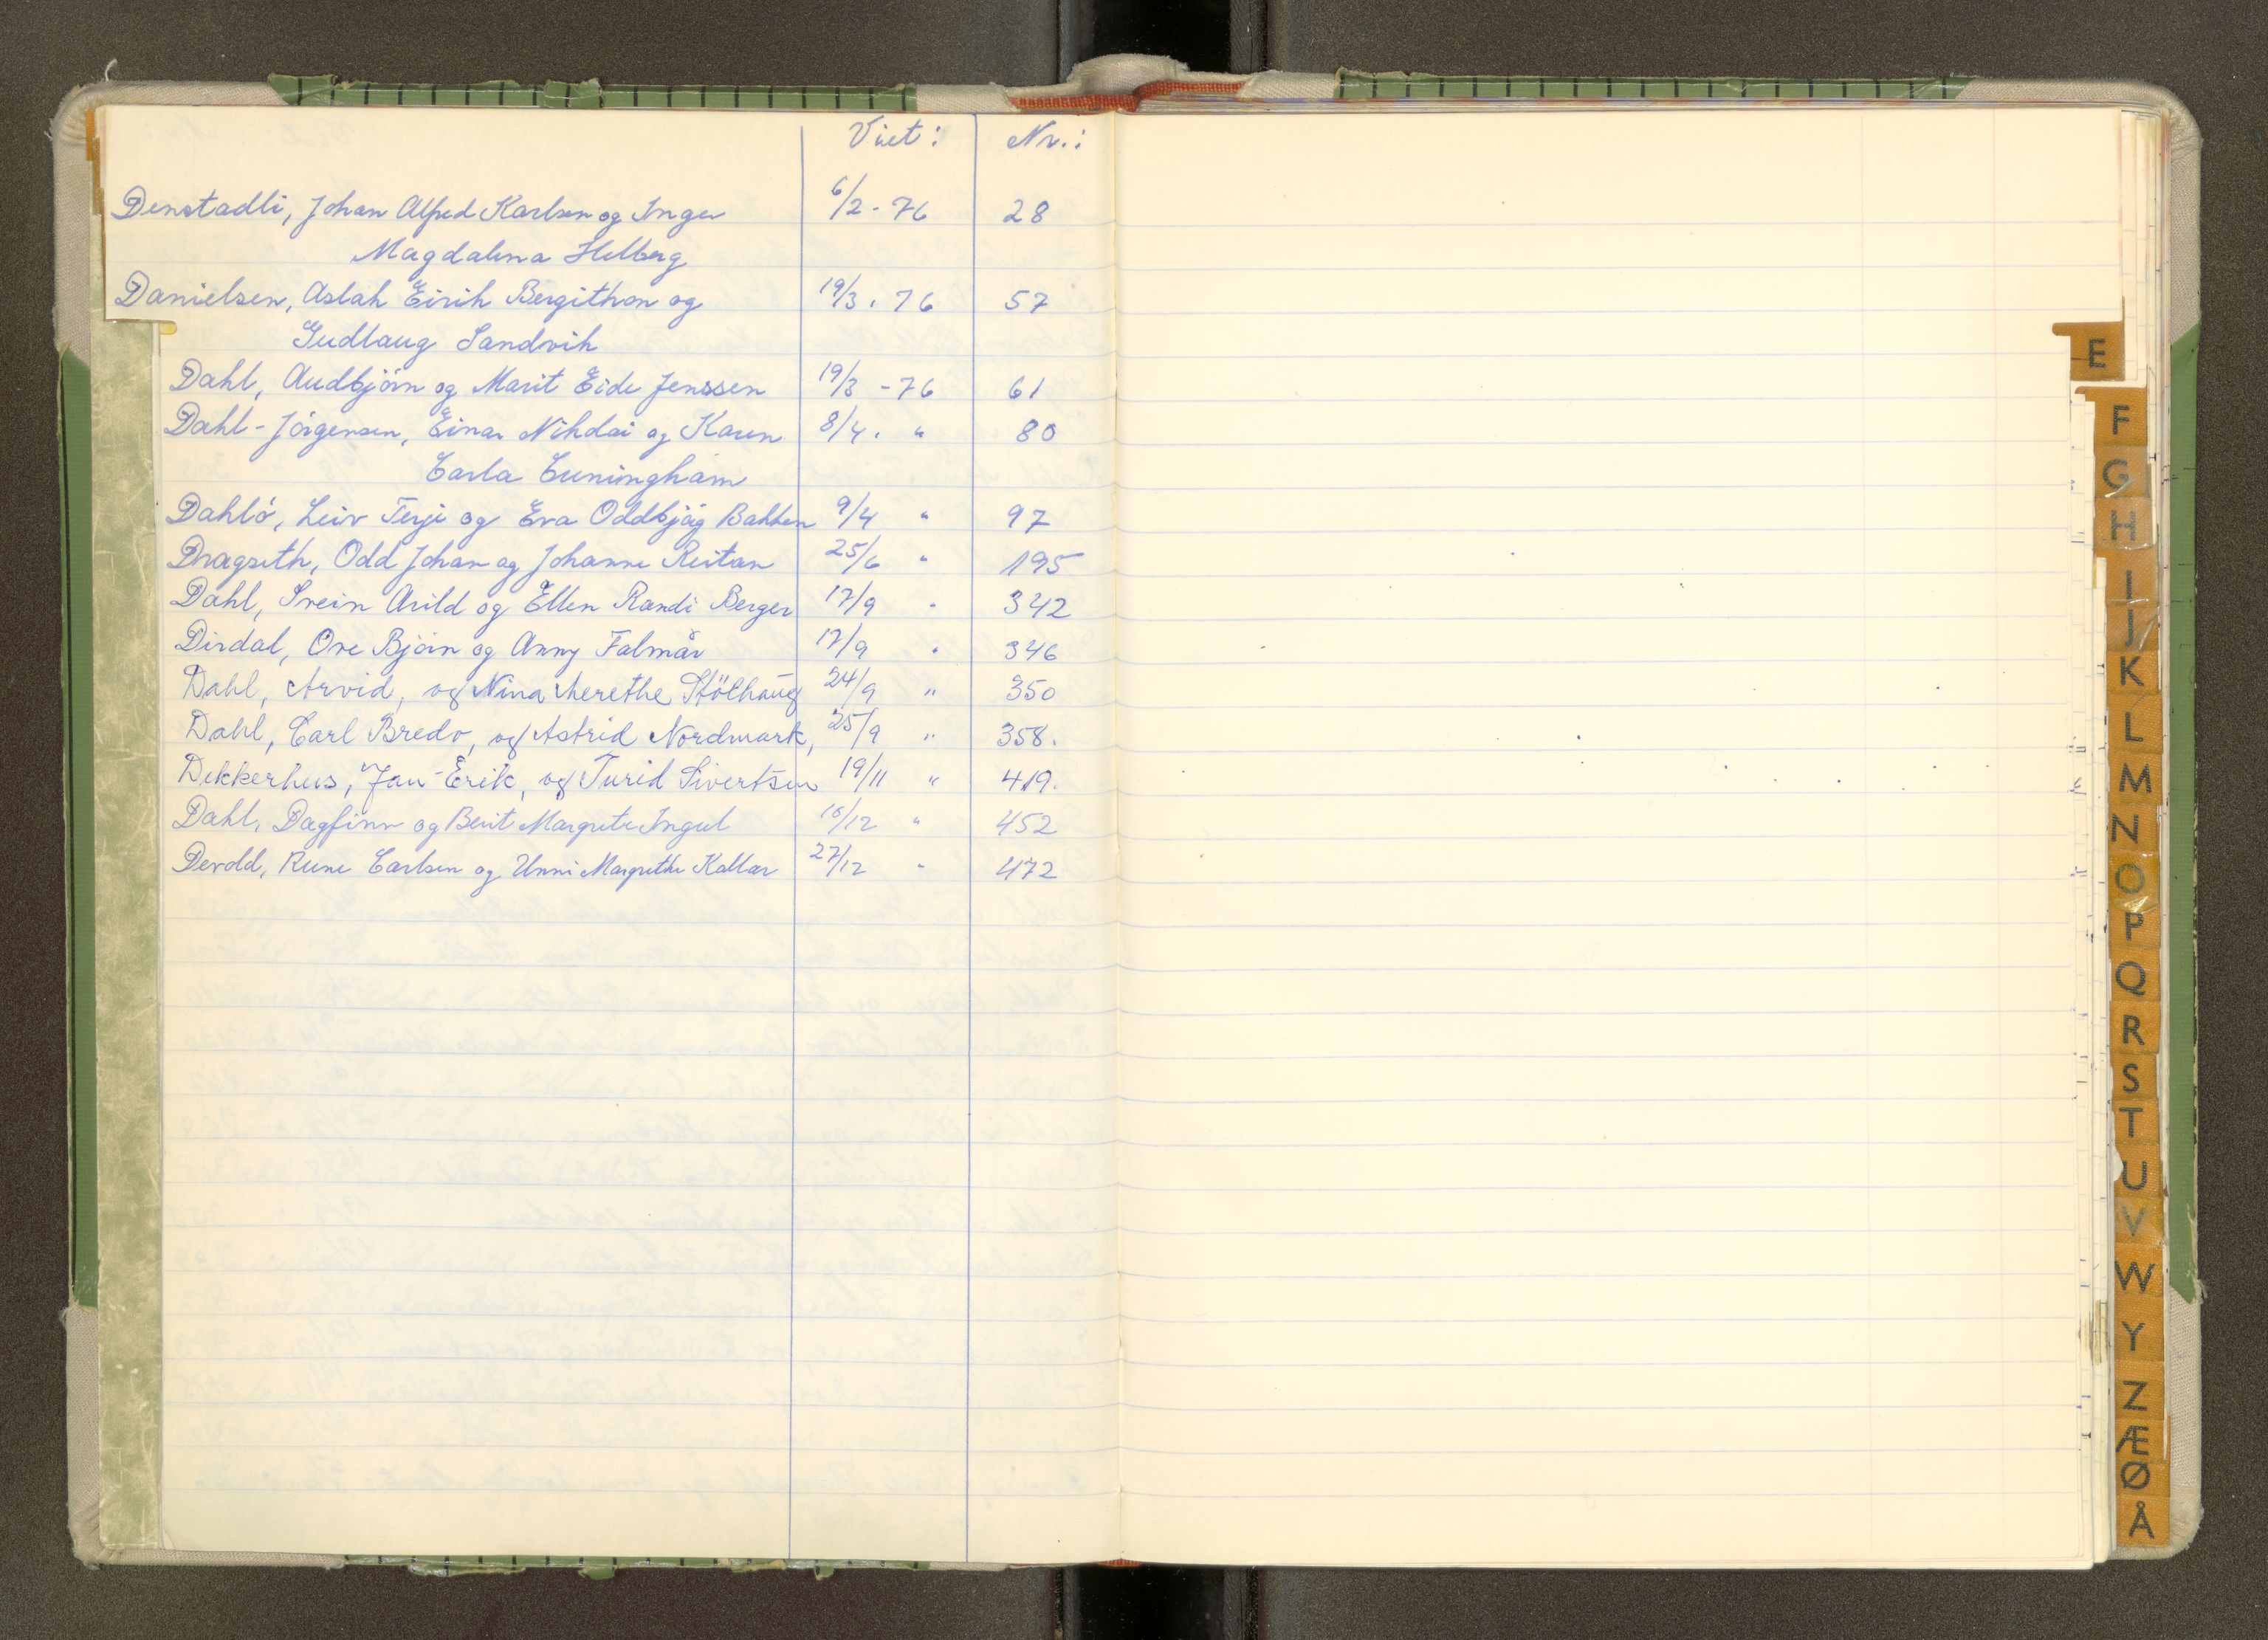 Viet: Nr.:
Denstadli, Johan Alfred Karlsen og Inger 6/2-76 28
Magdalena Helberg
Danielsen, Aslak Eirik Bergithon og 19/3.76 57
Gudlaug Sandvik
Dahl, Audbjörn og Marit Eide Jenssen 19/3 -76 61
Dahl-Jörgensen, Einar Nikolai og Karen 8/4. " 80
Carla Cuningham
Dahlö, Leiv Terje og Eva Oddbjög Bakken 9/4 " 97
Dragseth, Odd Johan og Johanne Reitan 25/6 " 195
Dahl, Svein Arild og Ellen Randi Berger 17/9 " 342
Dirdal, Ove Björn og Anny Falmår 17/9 " 346
Dahl, Arvid, og Nina Merethe Stölhaug 24/9 " 350
Dahl, Carl Bredo, og Astrid Nordmark, 25/9 " 358.
Dekkerhus, Jan-Erik, og Turid Sivertsen 19/11 " 419.
Dahl, Dagfinn og Berit Margrete Ingul 10/12 " 452
Devold, Rune Carlsen og Unni Margrethe Kallar 27/12 " 472
E
F
G
H
I
J
K
L
M
N
O
P
Q
R
S
T
U
V
W
Y
Z
Æ
Ø
Å